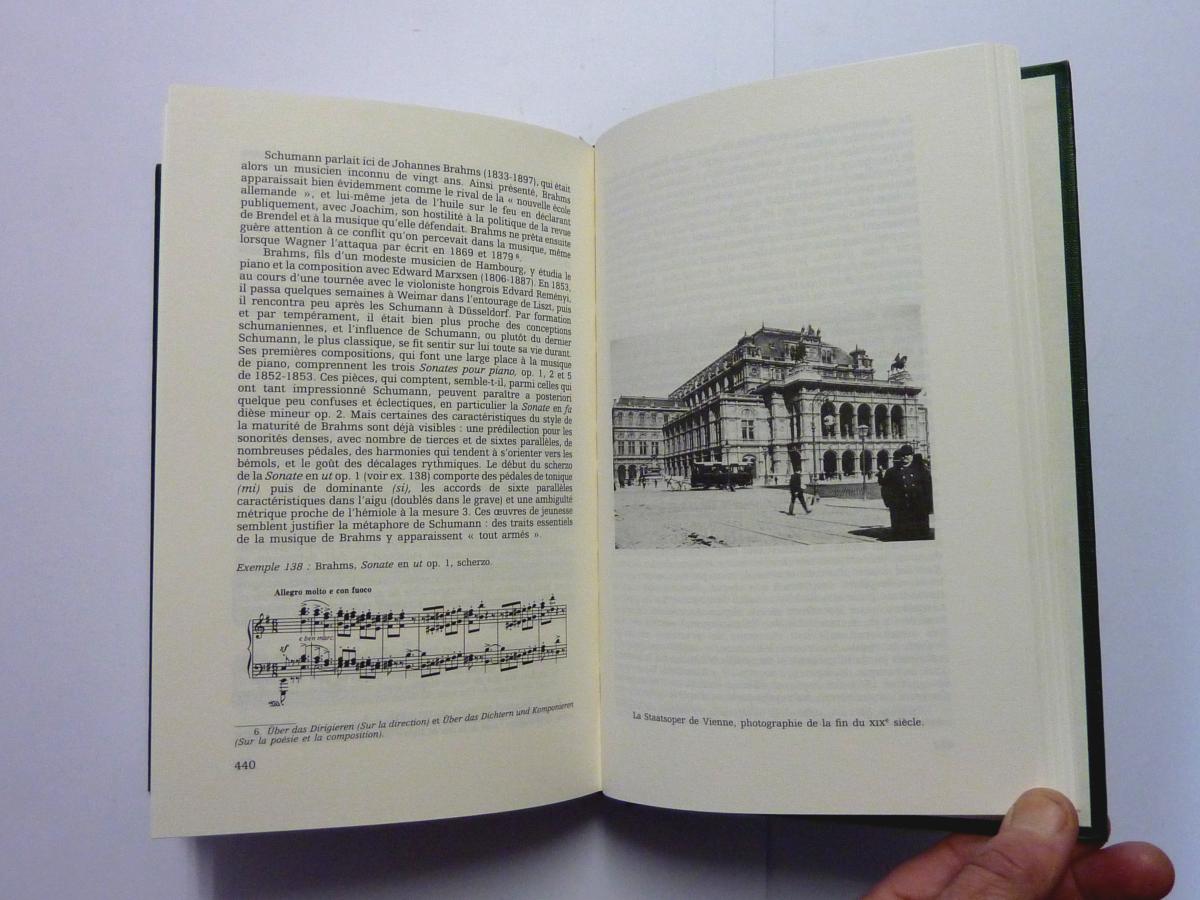 Schumann parlait ici de Johannes Brahms (1833-1897), qui était
alors un musicien inconnu de vingt ans. Ainsi présenté, Brahms
apparaissait bien évidemment comme le rival de la « nouvelle école
allemande », et lui-même jeta de l'huile sur le feu en déclarant
publiquement, avec Joachim, son hostilité à la politique de la revue
de Brendel et à la musique qu'elle défendait. Brahms ne prêta ensuite
guère attention à ce conflit qu'on percevait dans la musique, même
lorsque Wagner l'attaqua par écrit en 1869 et 1879 6.
Brahms, fils d'un modeste musicien de Hambourg, y étudia le
piano et la composition avec Edward Marxsen (1806-1887). En 1853,
au cours d'une tournée avec le violoniste hongrois Edvard Reményi,
il passa quelques semaines à Weimar dans l'entourage de Liszt, puis
il rencontra peu après les Schumann à Düsseldorf. Par formation
et par tempérament, il était bien plus proche des conceptions
schumaniennes, et l'influence de Schumann, ou plutôt du dernier
Schumann, le plus classique, se fit sentir sur lui toute sa vie durant.
Ses premières compositions, qui font une large place à la musique
de piano, comprennent les trois Sonates pour piano, op. 1, 2 et 5
de 1852-1853. Ces pièces, qui comptent, semble-t-il, parmi celles qui
ont tant impressionné Schumann, peuvent paraître a posteriori
quelque peu confuses et éclectiques, en particulier la Sonate en fa
dièse mineur op. 2. Mais certaines des caractéristiques du style de
la maturité de Brahms sont déjà visibles : une prédilection pour les
sonorités denses, avec nombre de tierces et de sixtes parallèles, de
nombreuses pédales, des harmonies qui tendent à s'orienter vers les
bémols, et le goût des décalages rythmiques. Le début du scherzo
de la Sonate en ut op. 1 (voir ex. 138) comporte des pédales de tonique
(mi) puis de dominante (si), les accords de sixte parallèles
caractéristiques dans l'aigu (doublés dans le grave) et une ambiguïté
métrique proche de l'hémiole à la mesure 3. Ces œuvres de jeunesse
semblent justifier la métaphore de Schumann : des traits essentiels
de la musique de Brahms y apparaissent « tout armés ».
Exemple 138 : Brahms, Sonate en ut op. 1, scherzo.
Allegro molto e con fuoco
e ben marc.
sf
6. Über das Dirigieren (Sur la direction) et Über das Dichtern und Komponieren
(Sur la poésie et la composition).
440
La Staatsoper de Vienne, photographie de la fin du XIXe siècle.